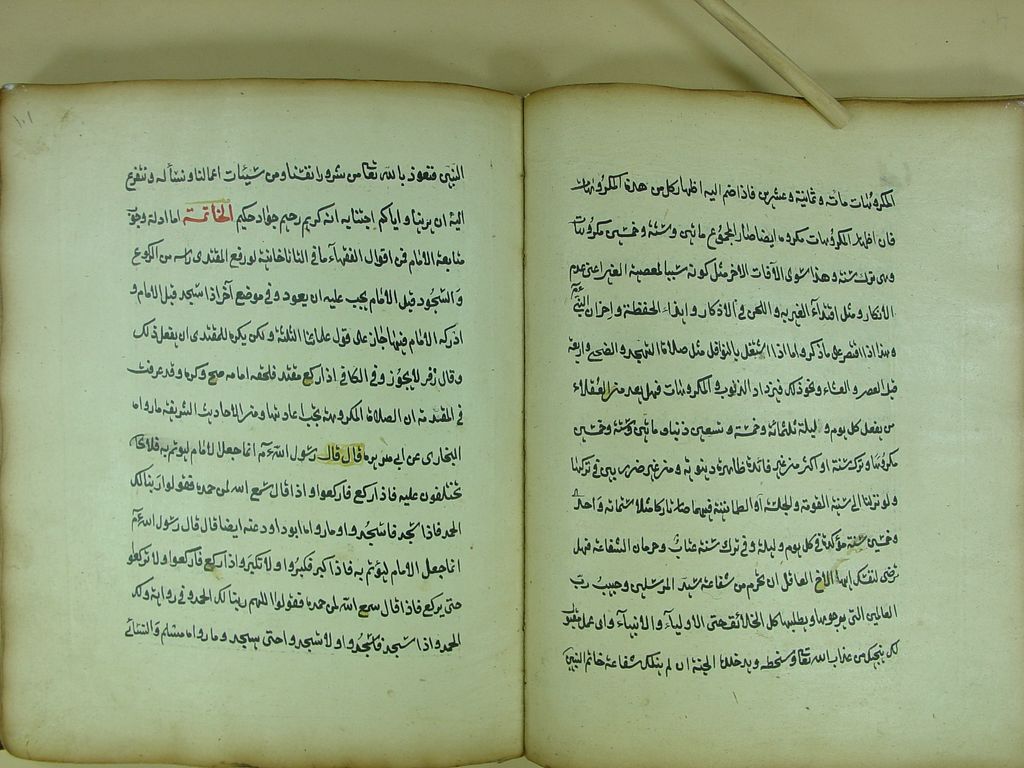 المكروهات مائة وثمانية وعشرين فاذا ضم اليه اظهار كل من هذه المكروهات
فان اظهار المكروهات مكروه ايضا صار المجموع مائتين وستة وخمسين مكروهات
وترك سنة وهذا سوى الآفات الاخر مثل كونه سببا لمعصية الغير اعني عدم
الانكار ومثل اقتداء الغير به واللحن في الاذكار وايذاء الحفظة واحزان النبي
وهذا اذا اقتصر على ما ذكر واما اذا اشتغل بالنوافل مثل صلاة التهجد والضحى واربعة
قبل العصر والعشاء ونحو ذلك فيزداد الذنوب والمكروهات فهل يعد من العقلاء
من يفعل كل يوم وليلة ثلثمائة وخمسة وتسعين ذنبا ومائتين وستة وخمسين
مكروها وترك سنة او اكثر من غير فائدة ظاهرة دنيوية ومن غير ضرر يبن في تركها
ولو نزلنا الى سنية القومة والجلسة او الطمانينة فيهما صار تاركا مثلا ثمانية واحد
وخمسين سنة مؤكدة في كل يوم وليلة وفي ترك سنة عتاب وحرمان الشفاعة فهل
ترضى لنفسك ايها الاخ العاقل ان تحرم من شفاعة سيد المرسلين وحبيب رب
العالمين التي يرجوها ويطلبها كل الخلائق حتى الاولياء والانبياء واي عمل
لك ينجيك من عذاب الله تعا وسخطه ويدخلك الجنة ان لم ينلك شفاعة خاتم النبيين
١٠١
النبي فنعوذ بالله تعا من شرور انفسنا ومن سيئات اعمالنا ونسأله ونتضرع
اليه ان يرينا واياكم اجتنابه انه كريم رحيم جواد حكيم الخاتمة اما ادلة وجوب
متابعة الامام فمن اقوال الفقهاء ما في التاتارخانية لو رفع المقتدى رأسه من الركوع
والسجود قبل الامام يجب عليه ان يعود وفي موضع آخر اذا سجد قبل الامام و
ادركه الامام فيها جاز على قول علمائنا الثلثة ولكن يكره للمقتدى ان يفعل ذلك
وقال زفر لا يجوز وفي الكافي اذا ركع مقتد فلحقه امامه صح وكره وقد عرفت
في المقدمة ان الصلاة المكروهة يجب اعادتها ومن الاحاديث الشريفة ما رواه
البخارى عن ابي هريرة قال قال رسول الله انما جعل الامام ليؤتم به فلا
تختلفوا عليه فاذا ركع فاركعوا واذا قال سمع الله لمن حمده فقولوا ربنا لك
الحمد فاذا سجد فاسجدوا وما رواه ابو داود عنه ايضا قال قال رسول الله
انما جعل الامام ليؤتم به فاذا كبر فكبروا ولا تكبروا واذا ركع فاركعوا ولا تركعوا
حتى يركع فاذا قال سمع الله لمن حمده فقولوا اللهم ربنا لك الحمد وفي رواية ولك
الحمد واذا سجد فاسجدوا ولا تسجدوا حتى يسجد وما رواه مسلم والنسائي